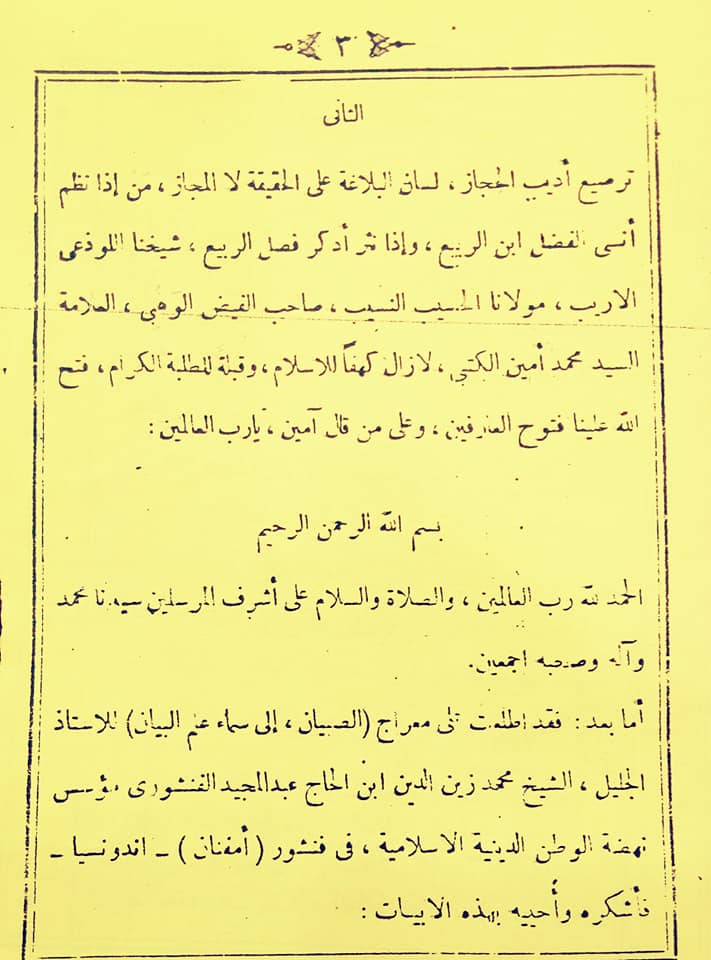 ٣
الثانى
ترصيع أديب الحجاز ، لسان البلاغة على الحقيقة لا المجاز ، من إذا نظم
أنسى الفضل ابن الربيع ، وإذا نثر أدكر فصل الربيع ، شيخنا اللوذعى
الاريب ، مولانا الحسيب النسيب ، صاحب الفيض الوهبى ، العلامة
السيد محمد أمين الكتبى ، لازال كهفاً للاسلام ، وقبلة للطلبة الكرام ، فتح
الله علينا فتوح العارفين ، وعلى من قال آمين ، يارب العالمين :
بسم الله الرحمن الرحيم
الحمد لله رب العالمين ، والصلاة والسلام على أشرف المرسلين سيدنا محمد
وآله وصحبه اجمعين .
أما بعد : فقد اطلعت على معراج (الصبيان ، إلى سماء علم البيان) للاستاذ
الجليل ، الشيخ محمد زين الدين ابن الحاج عبدالمجيد الفنشورى مؤسس
نهضة الوطن الدينية الاسلامية ، فى فنشور ( أمفنان ) ـ اندونسيا ـ
فأشكره وأحييه بهذه الابيات :